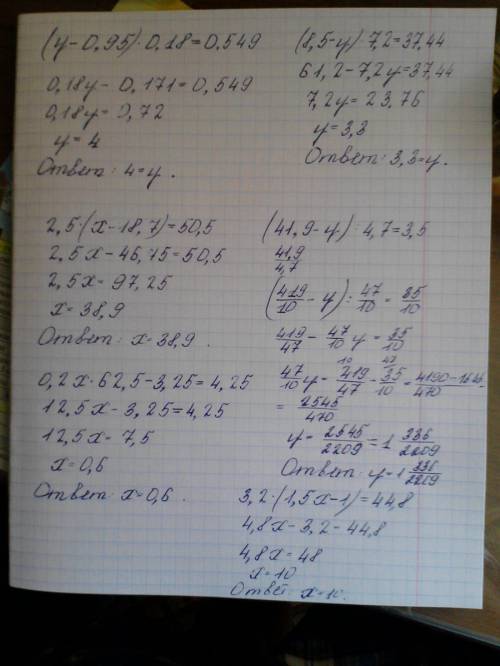 (y-0,95)·0,18=0,549
0,18y-0,171=0,549
0,18y=0,72
y=4
Ответ: 4=y.
(8,5-y)·7,2=37,44
61,2-7,2y=37,44
7,2y=23,76
y=3,3
Ответ: 3,3=y.
2,5·(x-18,7)=50,5
2,5x-46,75=50,5
2,5x=97,25
x=38,9
Ответ: x=38,9.
0,2x·62,5-3,25=4,25
12,5x-3,25=4,25
12,5x=7,5
x=0,6
Ответ: x=0,6.
(41,9-y):4,7=3,5
41,9/4,7
(419/10-y):47/10=35/10
419/47-47/10y=35/10
47/10y=419/47-35/10=4190-/470
=2545/470
y=2545/2209=1 336/2209
Ответ: y=1 336/2209
3,2·(1,5x-1)=44,8
4,8x-3,2-44,8
4,8x=48
x=10
Ответ: x=10.